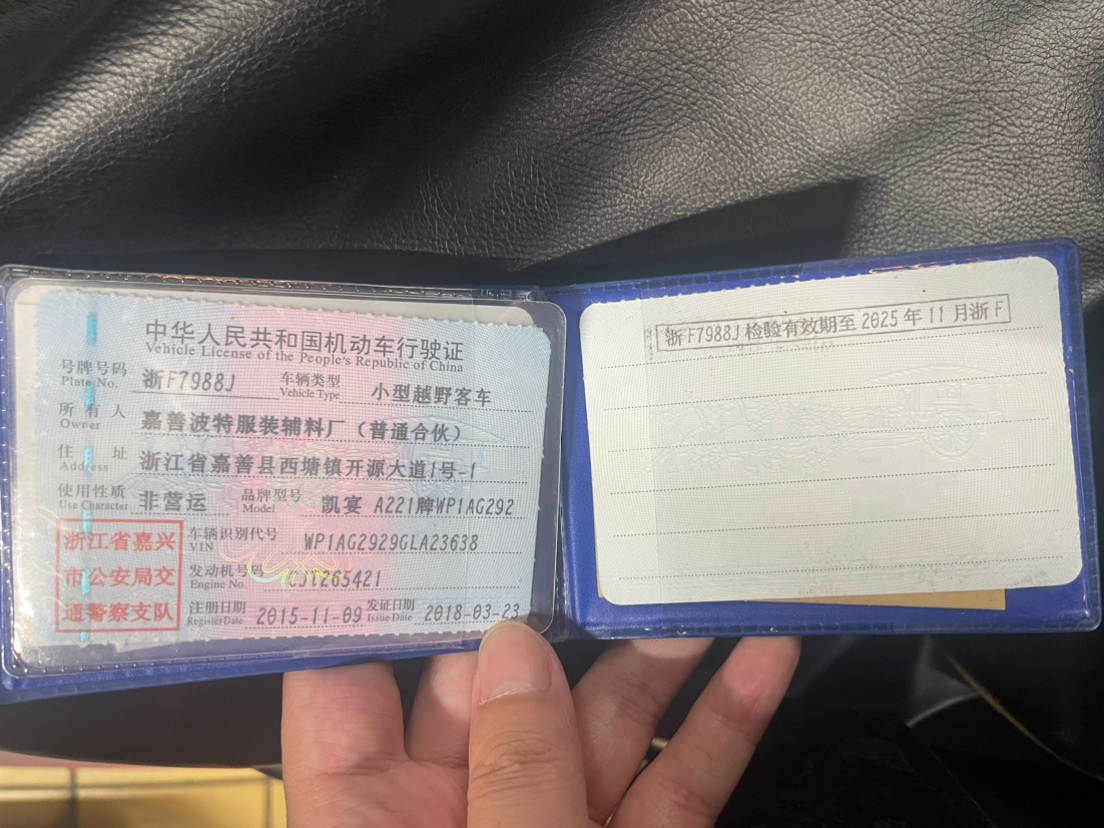 中华人民共和国机动车行驶证
Vehicle License of the People's Republic of China
号牌号码 浙F7988J 车辆类型 小型越野客车
Plate No. Vehicle Type
所有人 嘉善波特服装辅料厂（普通合伙）
Owner
住址 浙江省嘉善县西塘镇开源大道1号-1
Address
使用性质 非营运 品牌型号 凯宴 A221牌WP1AG292
Use Character Model
浙江省嘉兴
市公安局交
通警察支队
车辆识别代号 WP1AG2929GLA23638
VIN
发动机号码 265421
Engine No.
注册日期 2015-11-09 发证日期 2018-03-23
Register Date Issue Date
浙F7988J检验有效期至2025年11月浙F